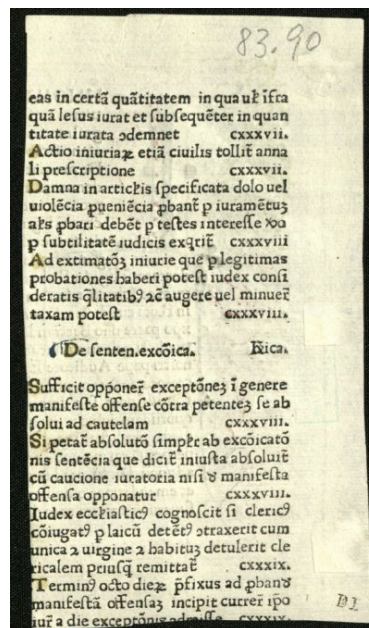 83.90
eas in certā quātitatem in qua uł īfra
quā lesus iurat et subsequēter in quan
titate iurata ↄdemnet cxxxvii.
Actio iniuriaꝝ etiā ciuilis tollit̄ anna
li prescriptione cxxxvii.
Damna in articłis specificata dolo uel
uiolēcia ꝓueniēcia ꝓbant̄ ꝑ iuramētuꝫ
ałs ꝓbari debēt ꝑ testes interesse
ꝑ subtilitatē iudicis exq̄rit̄ cxxxviii
Ad extimatōꝫ iniurie que ꝑ legitimas
probationes haberi potest iudex consi
deratis q̄litatibꝰ augere uel minuer̄
taxam potest cxxxviii.
De senten.excōica. Rica.
Sufficit oppōner̄ exceptōneꝫ ī genere
manifeste offense cōtra petenteꝫ se ab
solui ad cautelam cxxxviii.
Si petat̄ absolutō simpłr ab excōicatō
nis sentēcia que dicit̄ iniusta absoluit̄
cū caucione iuratoria nisi manifesta
offensa opponatur cxxxviii.
Iudex ecckiasticꝰ cognoscit si clericꝰ
cōiugatꝰ ꝑ laicū detētꝰ ↄtraxerit cum
unica ⁊ uirgine ⁊ habituꝫ detulerit cle
ricalem priusq̄ remittat̄ cxxxix.
Terminꝰ octo dieꝝ p̄fixus ad ꝓband
manifestā offensaꝫ incipit currer̄ ip̄o
iur̄ a die exceptōnis admisse cxxxix.
D 1